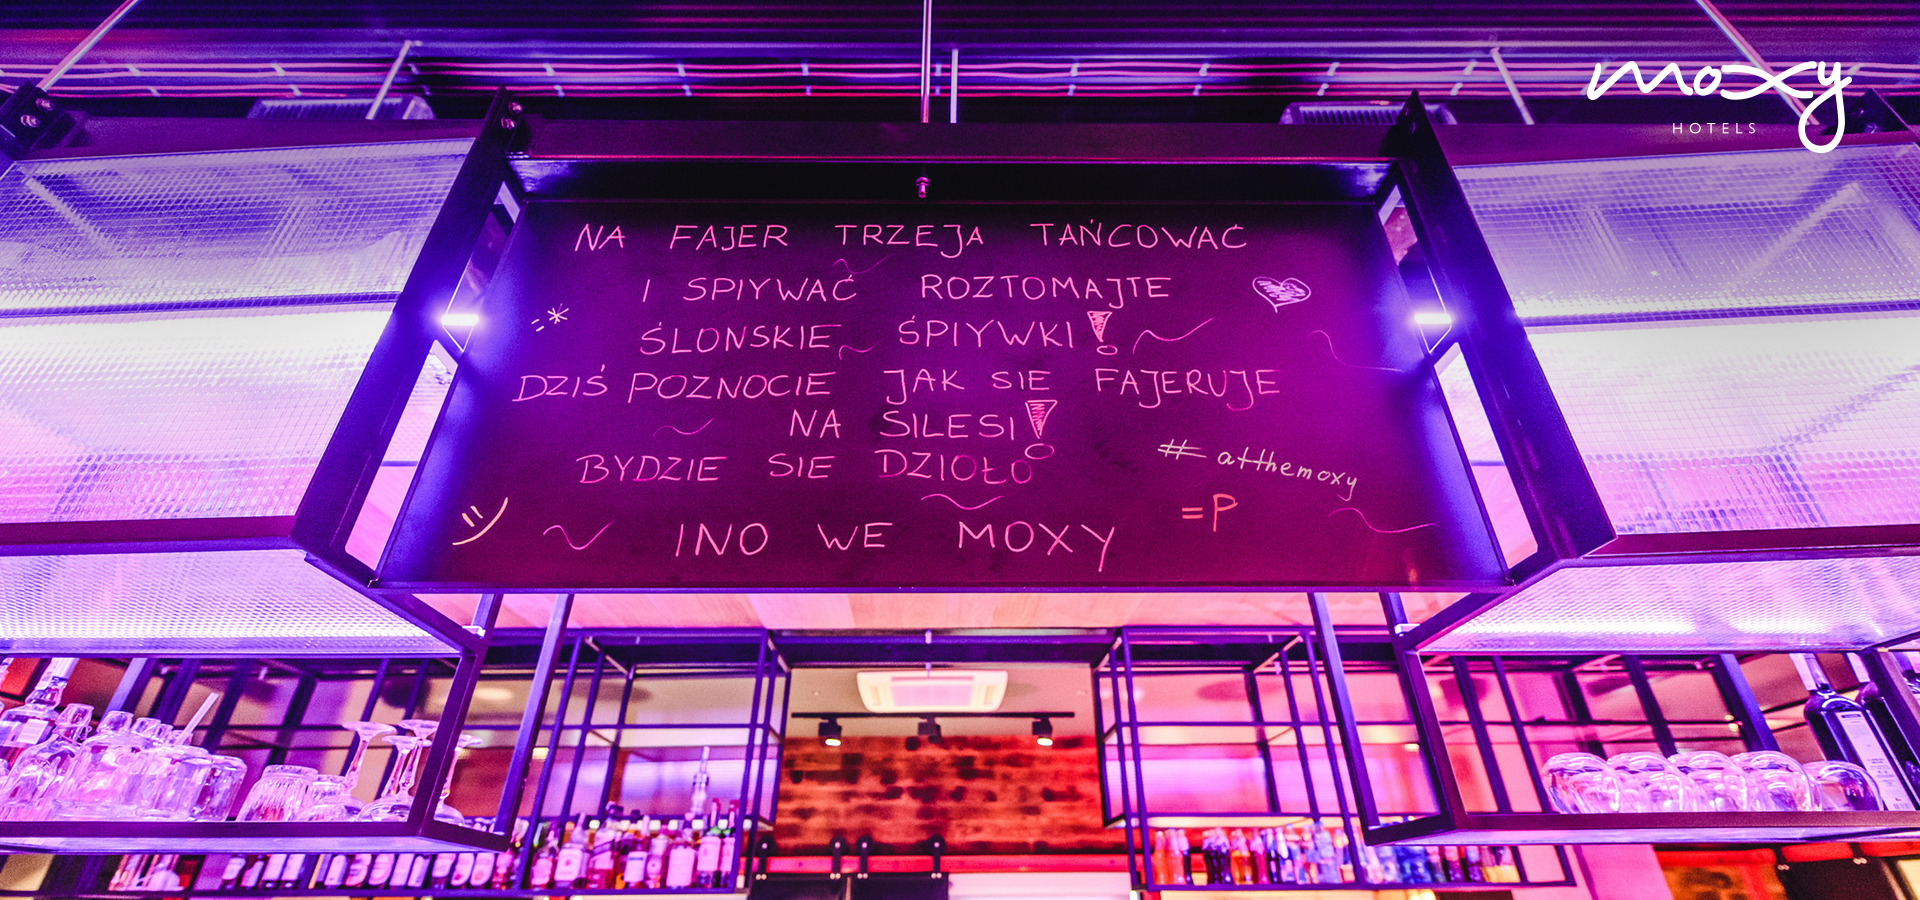 moxy
HOTELS
NA FAJER TRZEJA TAŃCOWAĆ
I SPIYWAĆ ROZTOMAJTE
ŚLONSKIE ŚPIYWKI!
DZIŚ POZNOCIE JAK SIE FAJERUJE
NA SILESI!
BYDZIE SIE DZIOŁO
#atthemoxy
=P
INO WE MOXY